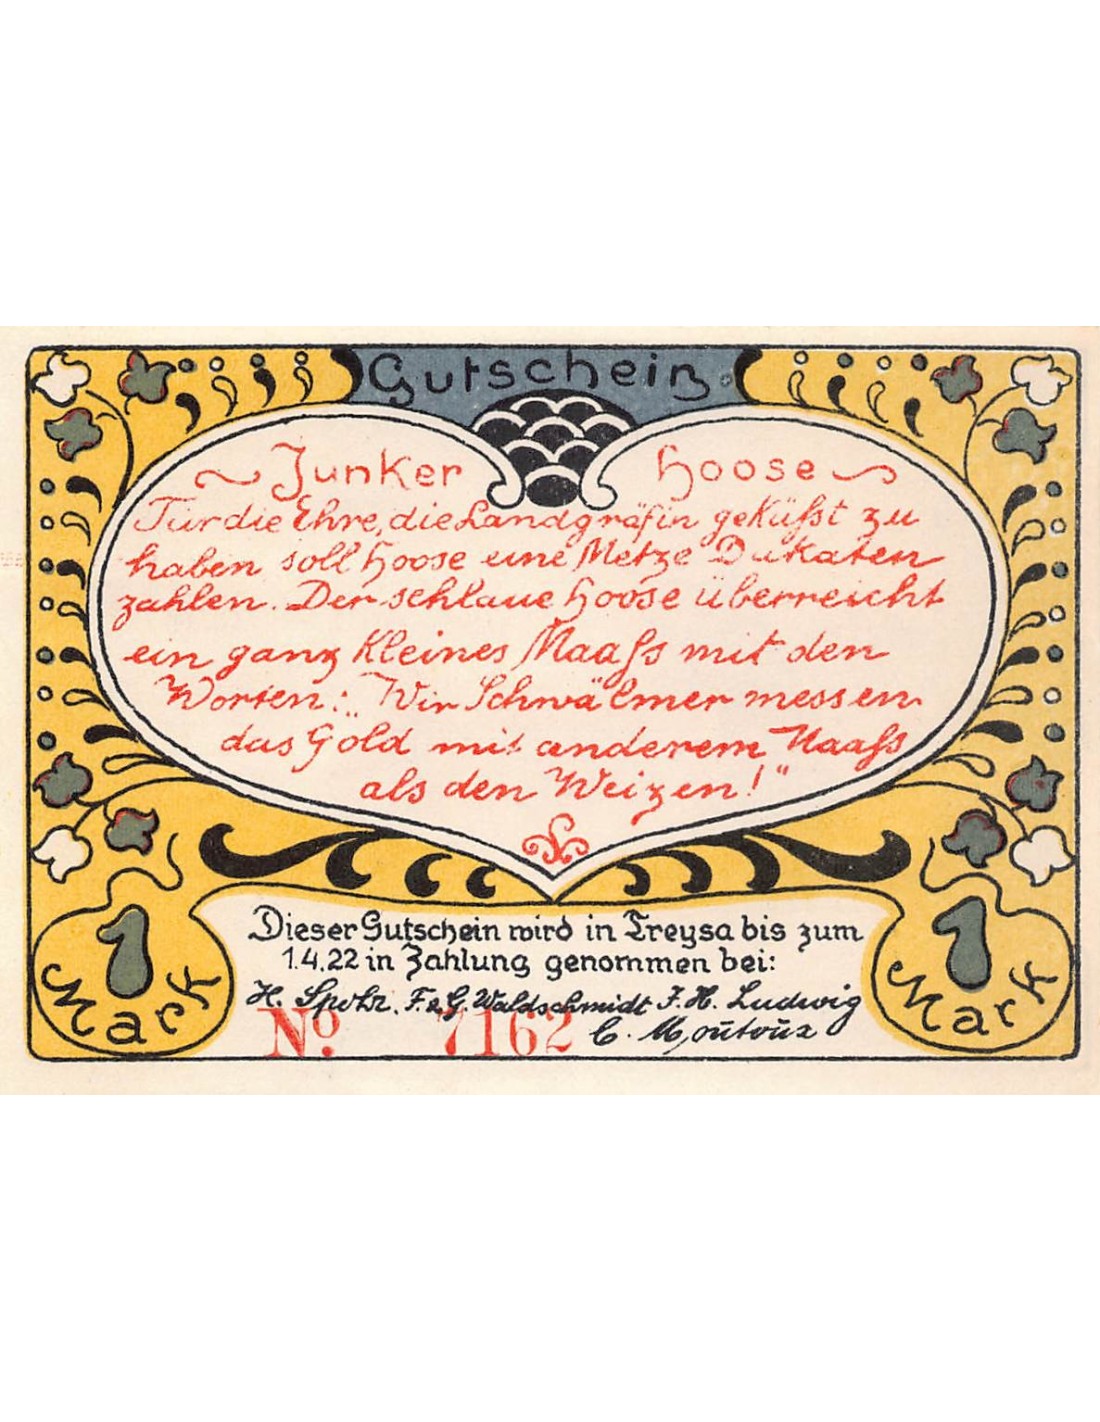 Gutschein
Junker Hoose
Für die Ehre, die Landgräfin geküßt zu
haben soll Hoose eine Metze Dukaten
zahlen. Der schlaue Hoose überreicht
ein ganz kleines Maaß mit den
Worten: „Wir Schwälmer messen
das Gold mit anderem Maaß
als den Weizen!“
Dieser Gutschein wird in Treysa bis zum
1.4.22 in Zahlung genommen bei:
H. Spohr. F. & G. Waldschmidt F. H. Ludwig
C. Moutoux
No. 7162
1 Mark
1 Mark